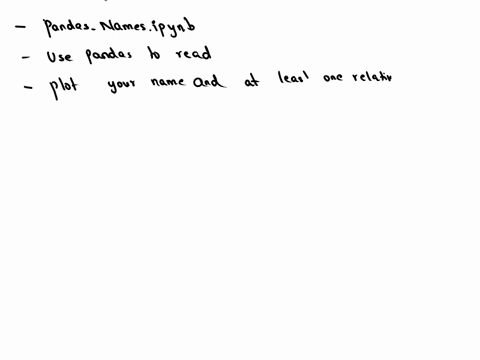 - Pandas_Names.ipynb
- Use pandas to read
- plot your name and at least one relativ